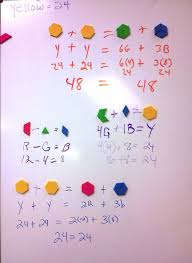 yellow = 24
+ = +
Y + Y = 6G + 3B
24 + 24 6(4) + 3(8)
48 = 48
- =
R - G = B
12 - 4 = 8
+ =
4G + 1B = Y
4(4) + 8 = 24
16 + 8 = 24
+ = +
Y + Y = 2R + 3B
24 + 24 = 2(12) + 3(8)
24 = 24